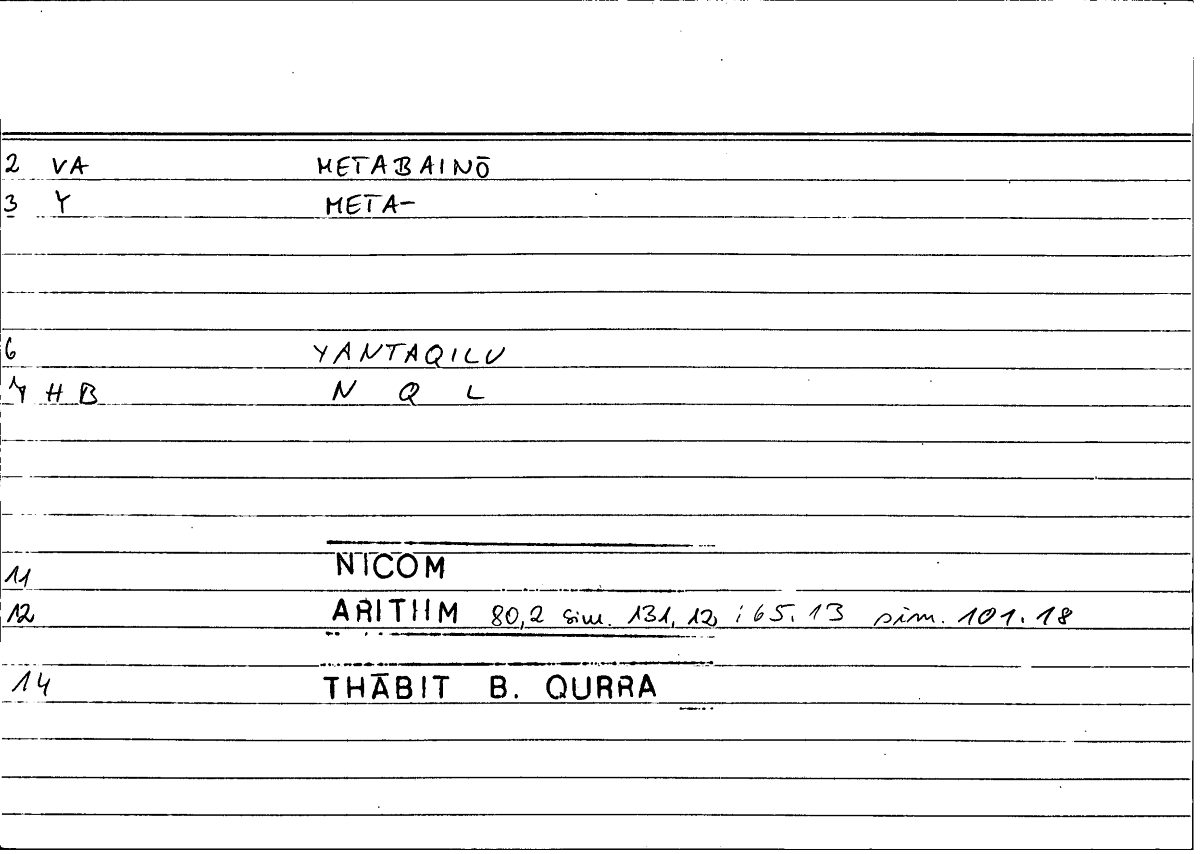 2 VA METABAINŌ
3 Y META-
6 YANTAQILU
7 H B N Q L
11 NICOM
12 ARITHM 80,2 sim. 131, 12, ; 65. 13 sim. 101. 18
14 THĀBIT B. QURRA